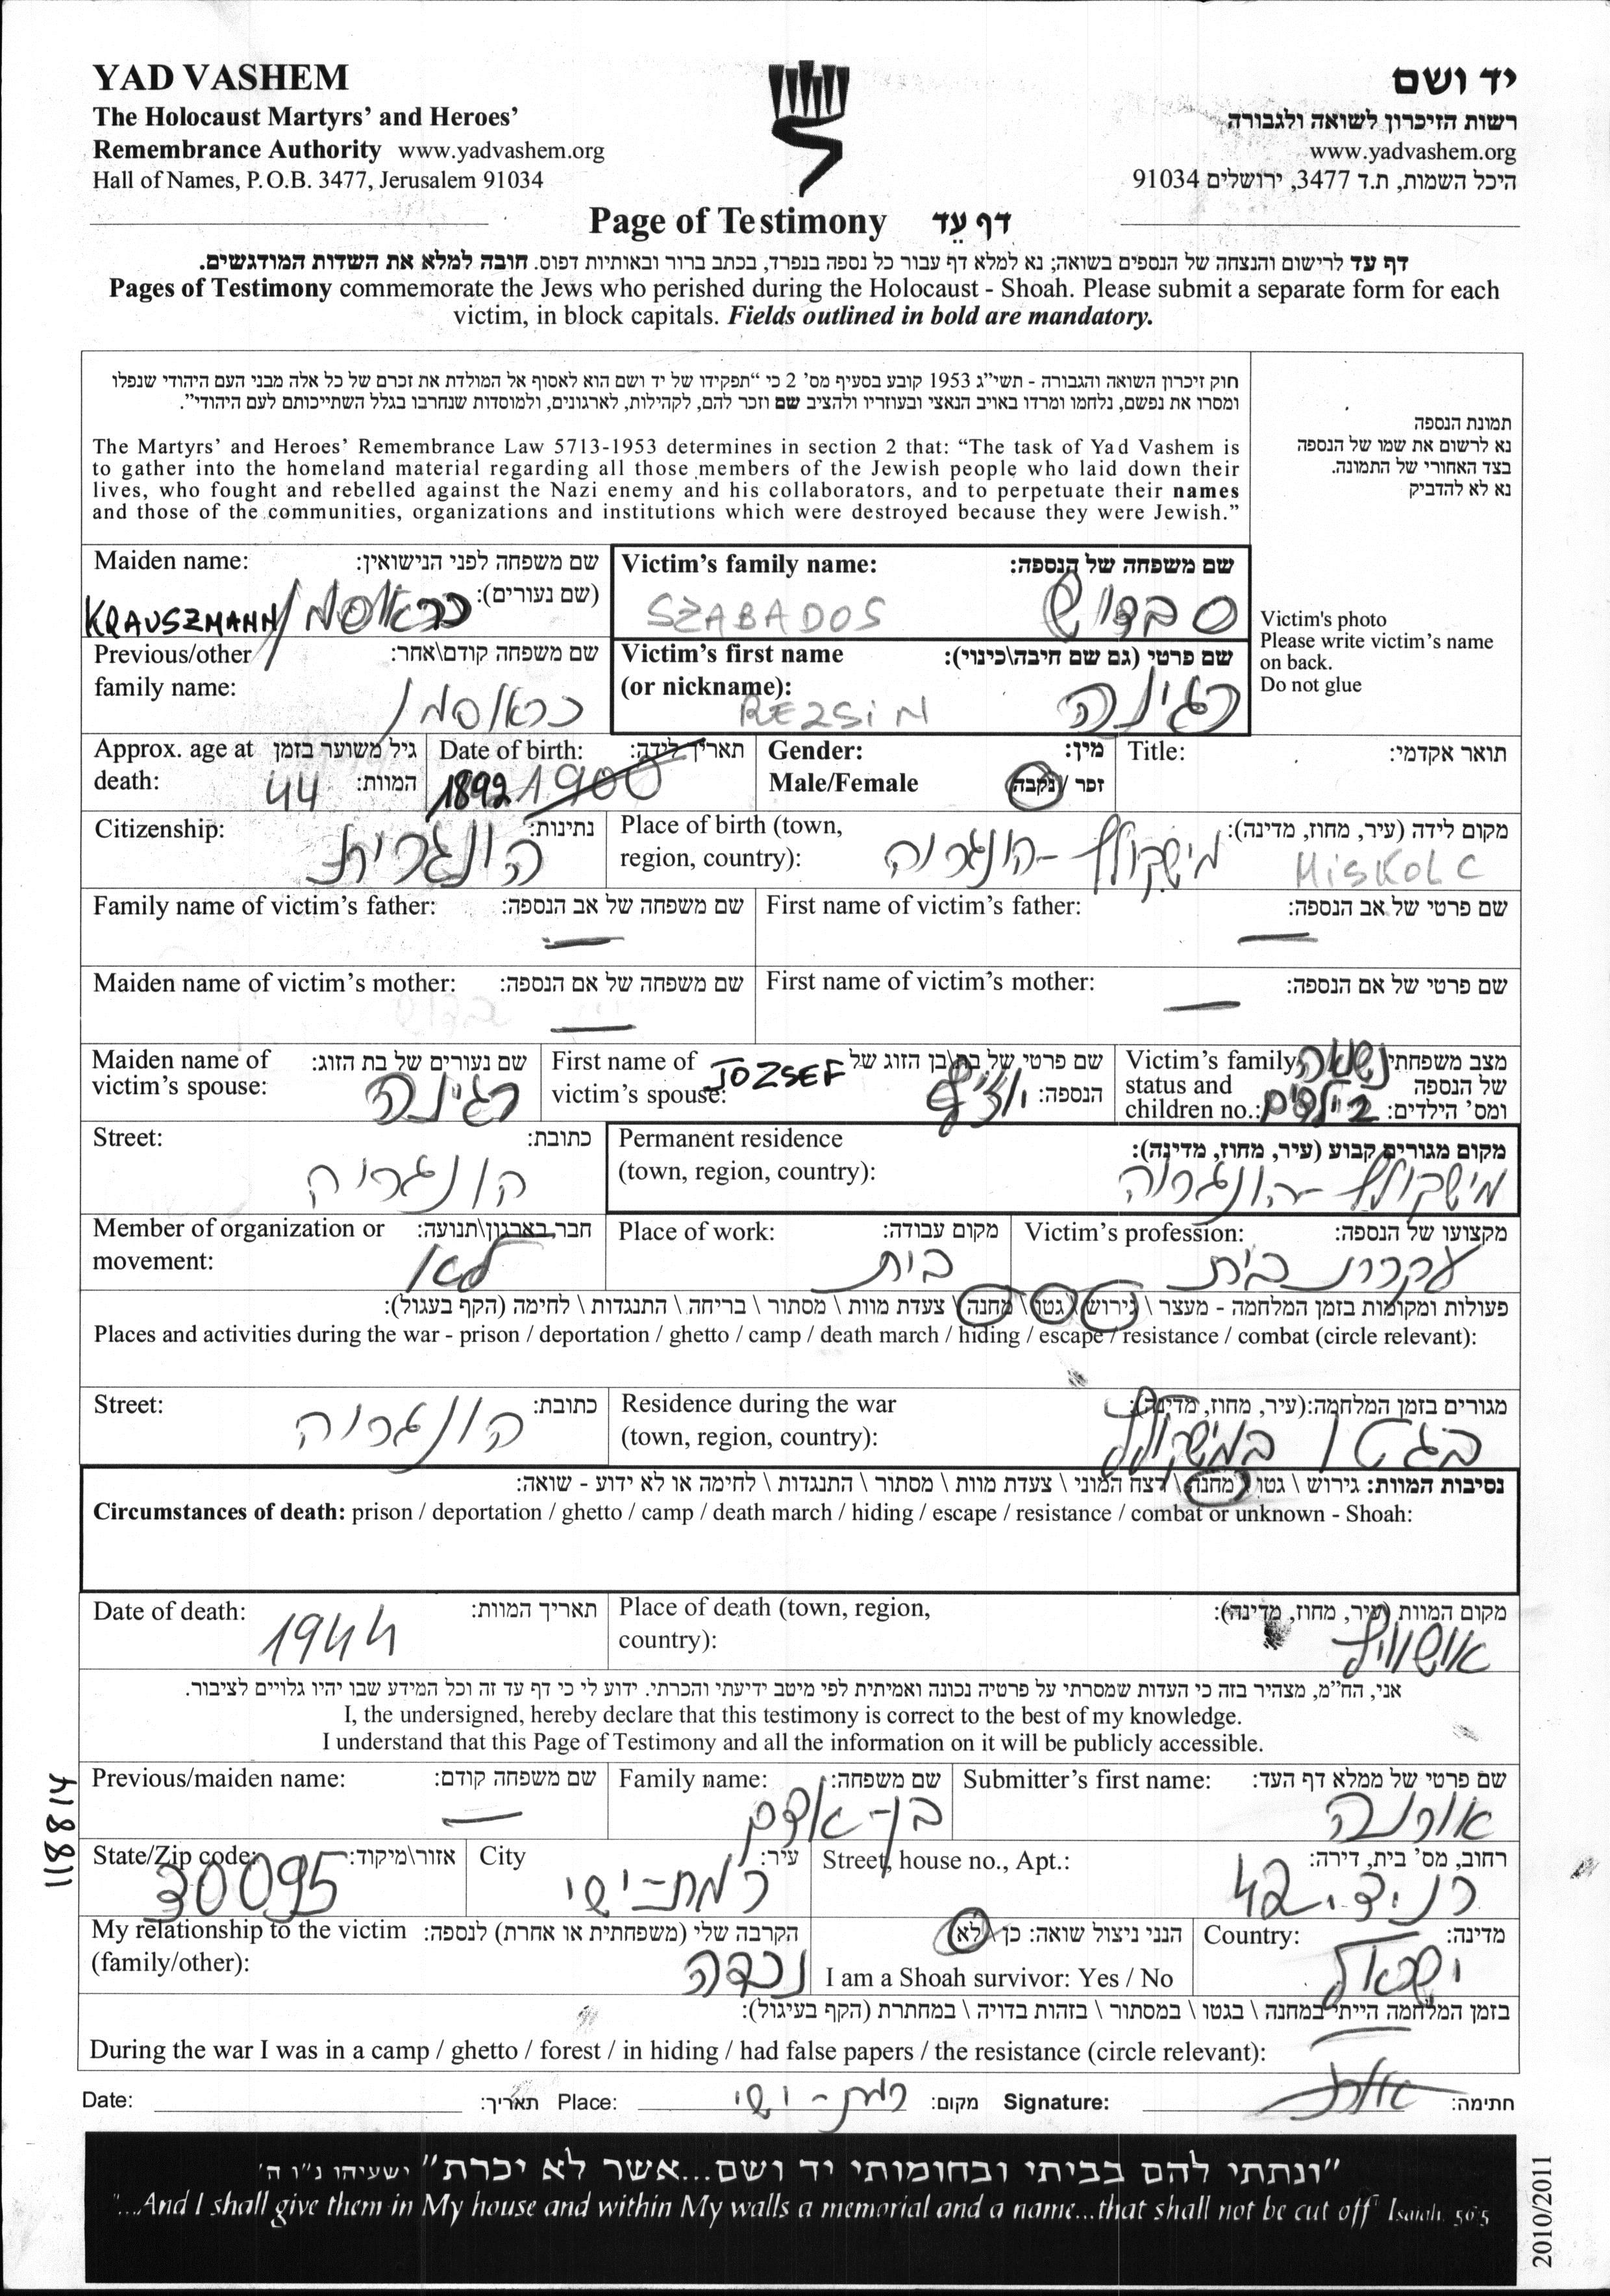 YAD VASHEM
The Holocaust Martyrs’ and Heroes’
Remembrance Authority www.yadvashem.org
Hall of Names, P.O.B. 3477, Jerusalem 91034
יד ושם
רשות הזיכרון לשואה ולגבורה
www.yadvashem.org
היכל השמות, ת.ד 3477, ירושלים 91034
Page of Testimony דף עֵד
דף עד לרישום והנצחה של הנספים בשואה; נא למלא דף עבור כל נספה בנפרד, בכתב ברור ובאותיות דפוס. חובה למלא את השדות המודגשים.
Pages of Testimony commemorate the Jews who perished during the Holocaust - Shoah. Please submit a separate form for each
victim, in block capitals. Fields outlined in bold are mandatory.
חוק זיכרון השואה והגבורה - תשי״ג 1953 קובע בסעיף מס׳ 2 כי “תפקידו של יד ושם הוא לאסוף אל המולדת את זכרם של כל אלה מבני העם היהודי שנפלו
ומסרו את נפשם, נלחמו ומרדו באויב הנאצי ובעוזריו ולהציב שם וזכר להם, לקהילות, לארגונים, ולמוסדות שנחרבו בגלל השתייכותם לעם היהודי”.
The Martyrs’ and Heroes’ Remembrance Law 5713-1953 determines in section 2 that: “The task of Yad Vashem is
to gather into the homeland material regarding all those members of the Jewish people who laid down their
lives, who fought and rebelled against the Nazi enemy and his collaborators, and to perpetuate their names
and those of the communities, organizations and institutions which were destroyed because they were Jewish.”
תמונת הנספה
נא לרשום את שמו של הנספה
בצד האחורי של התמונה.
נא לא להדביק
Victim's photo
Please write victim’s name
on back.
Do not glue
Maiden name: שם משפחה לפני הנישואין:
(שם נעורים):
KRAUSZMANN/ כראוסמן
Victim’s family name: שם משפחה של הנספה:
SZABADOS סבדוש
Previous/other שם משפחה קודם\אחר:
family name:
כראוסמן
Victim’s first name שם פרטי (גם שם חיבה\כינוי):
(or nickname):
REZSIN רגינה
Approx. age at גיל משוער בזמן
death: 44 המוות:
Date of birth: תאריך לידה:
1892 1900
Gender: מין:
Male/Female זכר / נקבה
Title: תואר אקדמי:
Citizenship: נתינות:
הונגרית
Place of birth (town, מקום לידה (עיר, מחוז, מדינה):
region, country): מישקולץ - הונגריה MISKOLC
Family name of victim’s father: שם משפחה של אב הנספה:
—
First name of victim’s father: שם פרטי של אב הנספה:
—
Maiden name of victim’s mother: שם משפחה של אם הנספה:
—
First name of victim’s mother: שם פרטי של אם הנספה:
—
Maiden name of שם נעורים של בת הזוג:
victim’s spouse: רגינה
First name of JOZSEF שם פרטי של בת\בן הזוג של
victim’s spouse: יוז'ף הנספה:
Victim’s family נשואה מצב משפחתי
status and של הנספה
children no.: 2 ילדים ומס׳ הילדים:
Street: כתובת:
הונגריה
Permanent residence מקום מגורים קבוע (עיר, מחוז, מדינה):
(town, region, country): מישקולץ - הונגריה
Member of organization or חבר בארגון\תנועה:
movement: לא
Place of work: מקום עבודה:
בית
Victim’s profession: מקצועו של הנספה:
עקרת בית
פעולות ומקומות בזמן המלחמה - מעצר \ גירוש \ גטו \ מחנה \ צעדת מוות \ מסתור \ בריחה \ התנגדות \ לחימה (הקף בעגול):
Places and activities during the war - prison / deportation / ghetto / camp / death march / hiding / escape / resistance / combat (circle relevant):
Street: כתובת:
הונגריה
Residence during the war מגורים בזמן המלחמה:(עיר, מחוז, מדינה):
(town, region, country): בגטו במישקולץ
נסיבות המוות: גירוש \ גטו \ מחנה \ רצח המוני \ צעדת מוות \ מסתור \ התנגדות \ לחימה או לא ידוע - שואה:
Circumstances of death: prison / deportation / ghetto / camp / death march / hiding / escape / resistance / combat or unknown - Shoah:
Date of death: תאריך המוות:
1944
Place of death (town, region, מקום המוות (עיר, מחוז, מדינה):
country): אושוויץ
אני, הח״מ, מצהיר בזה כי העדות שמסרתי על פרטיה נכונה ואמיתית לפי מיטב ידיעתי והכרתי. ידוע לי כי דף עד זה וכל המידע שבו יהיו גלויים לציבור.
I, the undersigned, hereby declare that this testimony is correct to the best of my knowledge.
I understand that this Page of Testimony and all the information on it will be publicly accessible.
Previous/maiden name: שם משפחה קודם:
—
Family name: שם משפחה:
בן-אדם
Submitter’s first name: שם פרטי של ממלא דף העד:
אורנה
State/Zip code: אזור\מיקוד:
30095
City עיר:
רמת-ישי
Street, house no., Apt.: רחוב, מס׳ בית, דירה:
42
My relationship to the victim הקרבה שלי (משפחתית או אחרת) לנספה:
(family/other): נכדה
הנני ניצול שואה: כן \ לא
I am a Shoah survivor: Yes / No
Country: מדינה:
ישראל
בזמן המלחמה הייתי במחנה \ בגטו \ במסתור \ בזהות בדויה \ במחתרת (הקף בעיגול):
During the war I was in a camp / ghetto / forest / in hiding / had false papers / the resistance (circle relevant):
Date: תאריך: Place: רמת-ישי מקום: Signature: חתימה:
“ונתתי להם בביתי ובחומותי יד ושם...אשר לא יכרת” ישעיהו נ״ו ה׳
“...And I shall give them in My house and within My walls a memorial and a name...that shall not be cut off” Isaiah, 56:5
2010/2011